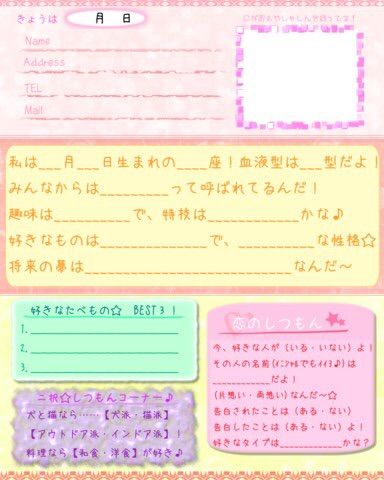 きょうは　月　日
にがおえやしゃしんを貼ってネ！
Name
Address
TEL
Mail
私は___月___日生まれの____座！血液型は___型だよ！
みんなからは_________って呼ばれてるんだ！
趣味は__________で、特技は__________かな♪
好きなものは____________で、_________な性格☆
将来の夢は____________________なんだ～
好きなたべもの☆　BEST3！
1.
2.
3.
二択☆しつもんコーナー♪
犬と猫なら……【犬派・猫派】
【アウトドア派・インドア派】！
料理なら【和食・洋食】が好き♪
恋のしつもん
今、好きな人が（いる・いない）よ！
その人の名前(ｲﾆｼｬﾙでもｲｲﾖ♪)は
__________だよ！
(片想い・両想い)なんだ～☆
告白されたことは（ある・ない）
告白したことは（ある・ない）よ！
好きなタイプは__________かな？